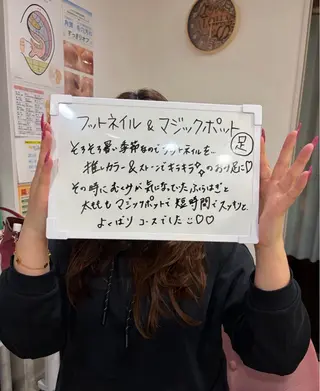 フットネイル & マジックポット
足
そろそろ暑い季節なのでフットネイルを…
推しカラー&ストーンでキラキラ✨のお爪に♡
その時にむくみが気になっていたふくらはぎと
太ももも マジックポットで 短時間でスッキリ、
よくばり コースでした♡♡